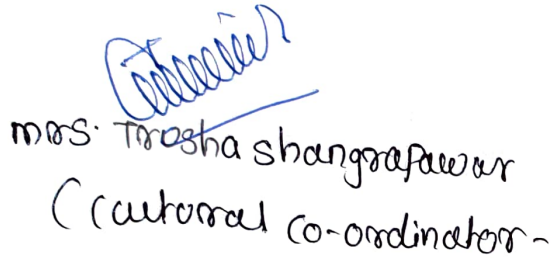 mrs. Trosha shangrapawar
(cultoral co-ordinator-